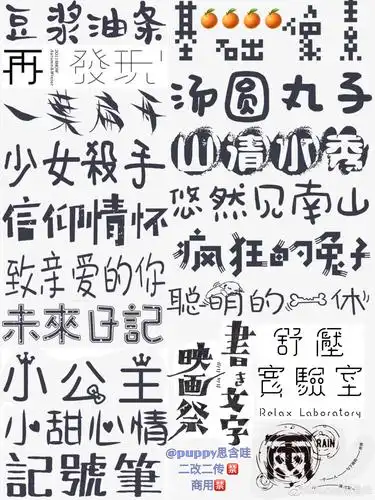 豆浆油条
再發現
一葉扁舟
少女殺手
信仰情怀
致亲爱的你
未來日記
小公主
小甜心情
記號筆
基础像素
汤圆丸子
山清水秀
悠然见南山
疯狂的兔子
聪明的一休
映画祭
書き文字
舒壓
实驗室
Relax Laboratory
雨
RAIN
@puppy思含哇
二改二传🈲
商用🈲